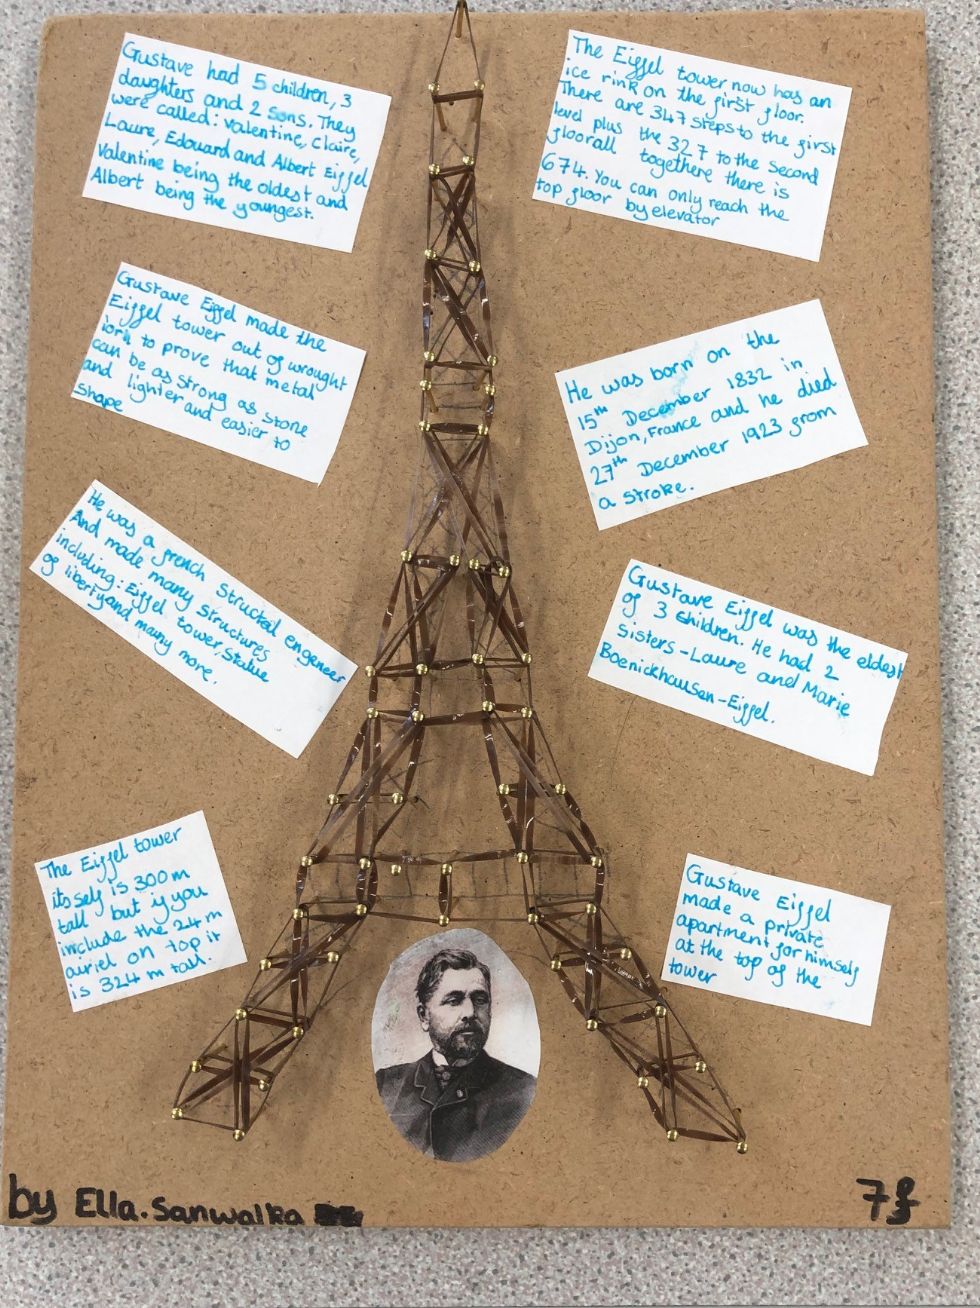 Gustave had 5 children, 3
daughters and 2 sons. They
were called: Valentine, Claire,
Laure, Edouard and Albert Eiffel
Valentine being the oldest and
Albert being the youngest.
The Eiffel tower now has an
ice rink on the first floor.
There are 347 steps to the first
level plus the 327 to the second
floor all togethere there is
674. You can only reach the
top floor by elevator
Gustave Eiffel made the
Eiffel tower out of wrought
iorn to prove that metal
can be as strong as stone
and lighter and easier to
shape
He was born on the
15th December 1832 in
Dijon, France and he died
27th December 1923 from
a stroke.
He was a french Structed engeneer
And made many structures
including: Eiffel tower, Statue
of liberty and many more.
Gustave Eiffel was the eldest
of 3 children. He had 2
Sisters - Laure and Marie
Boenickhausen - Eiffel.
The Eiffel tower
itsself is 300m
tall but if you
include the 24m
auriel on top it
is 324 m tall.
Gustave Eiffel
made a private
apartment for himself
at the top of the
tower
by Ella. Sanwalka
7f